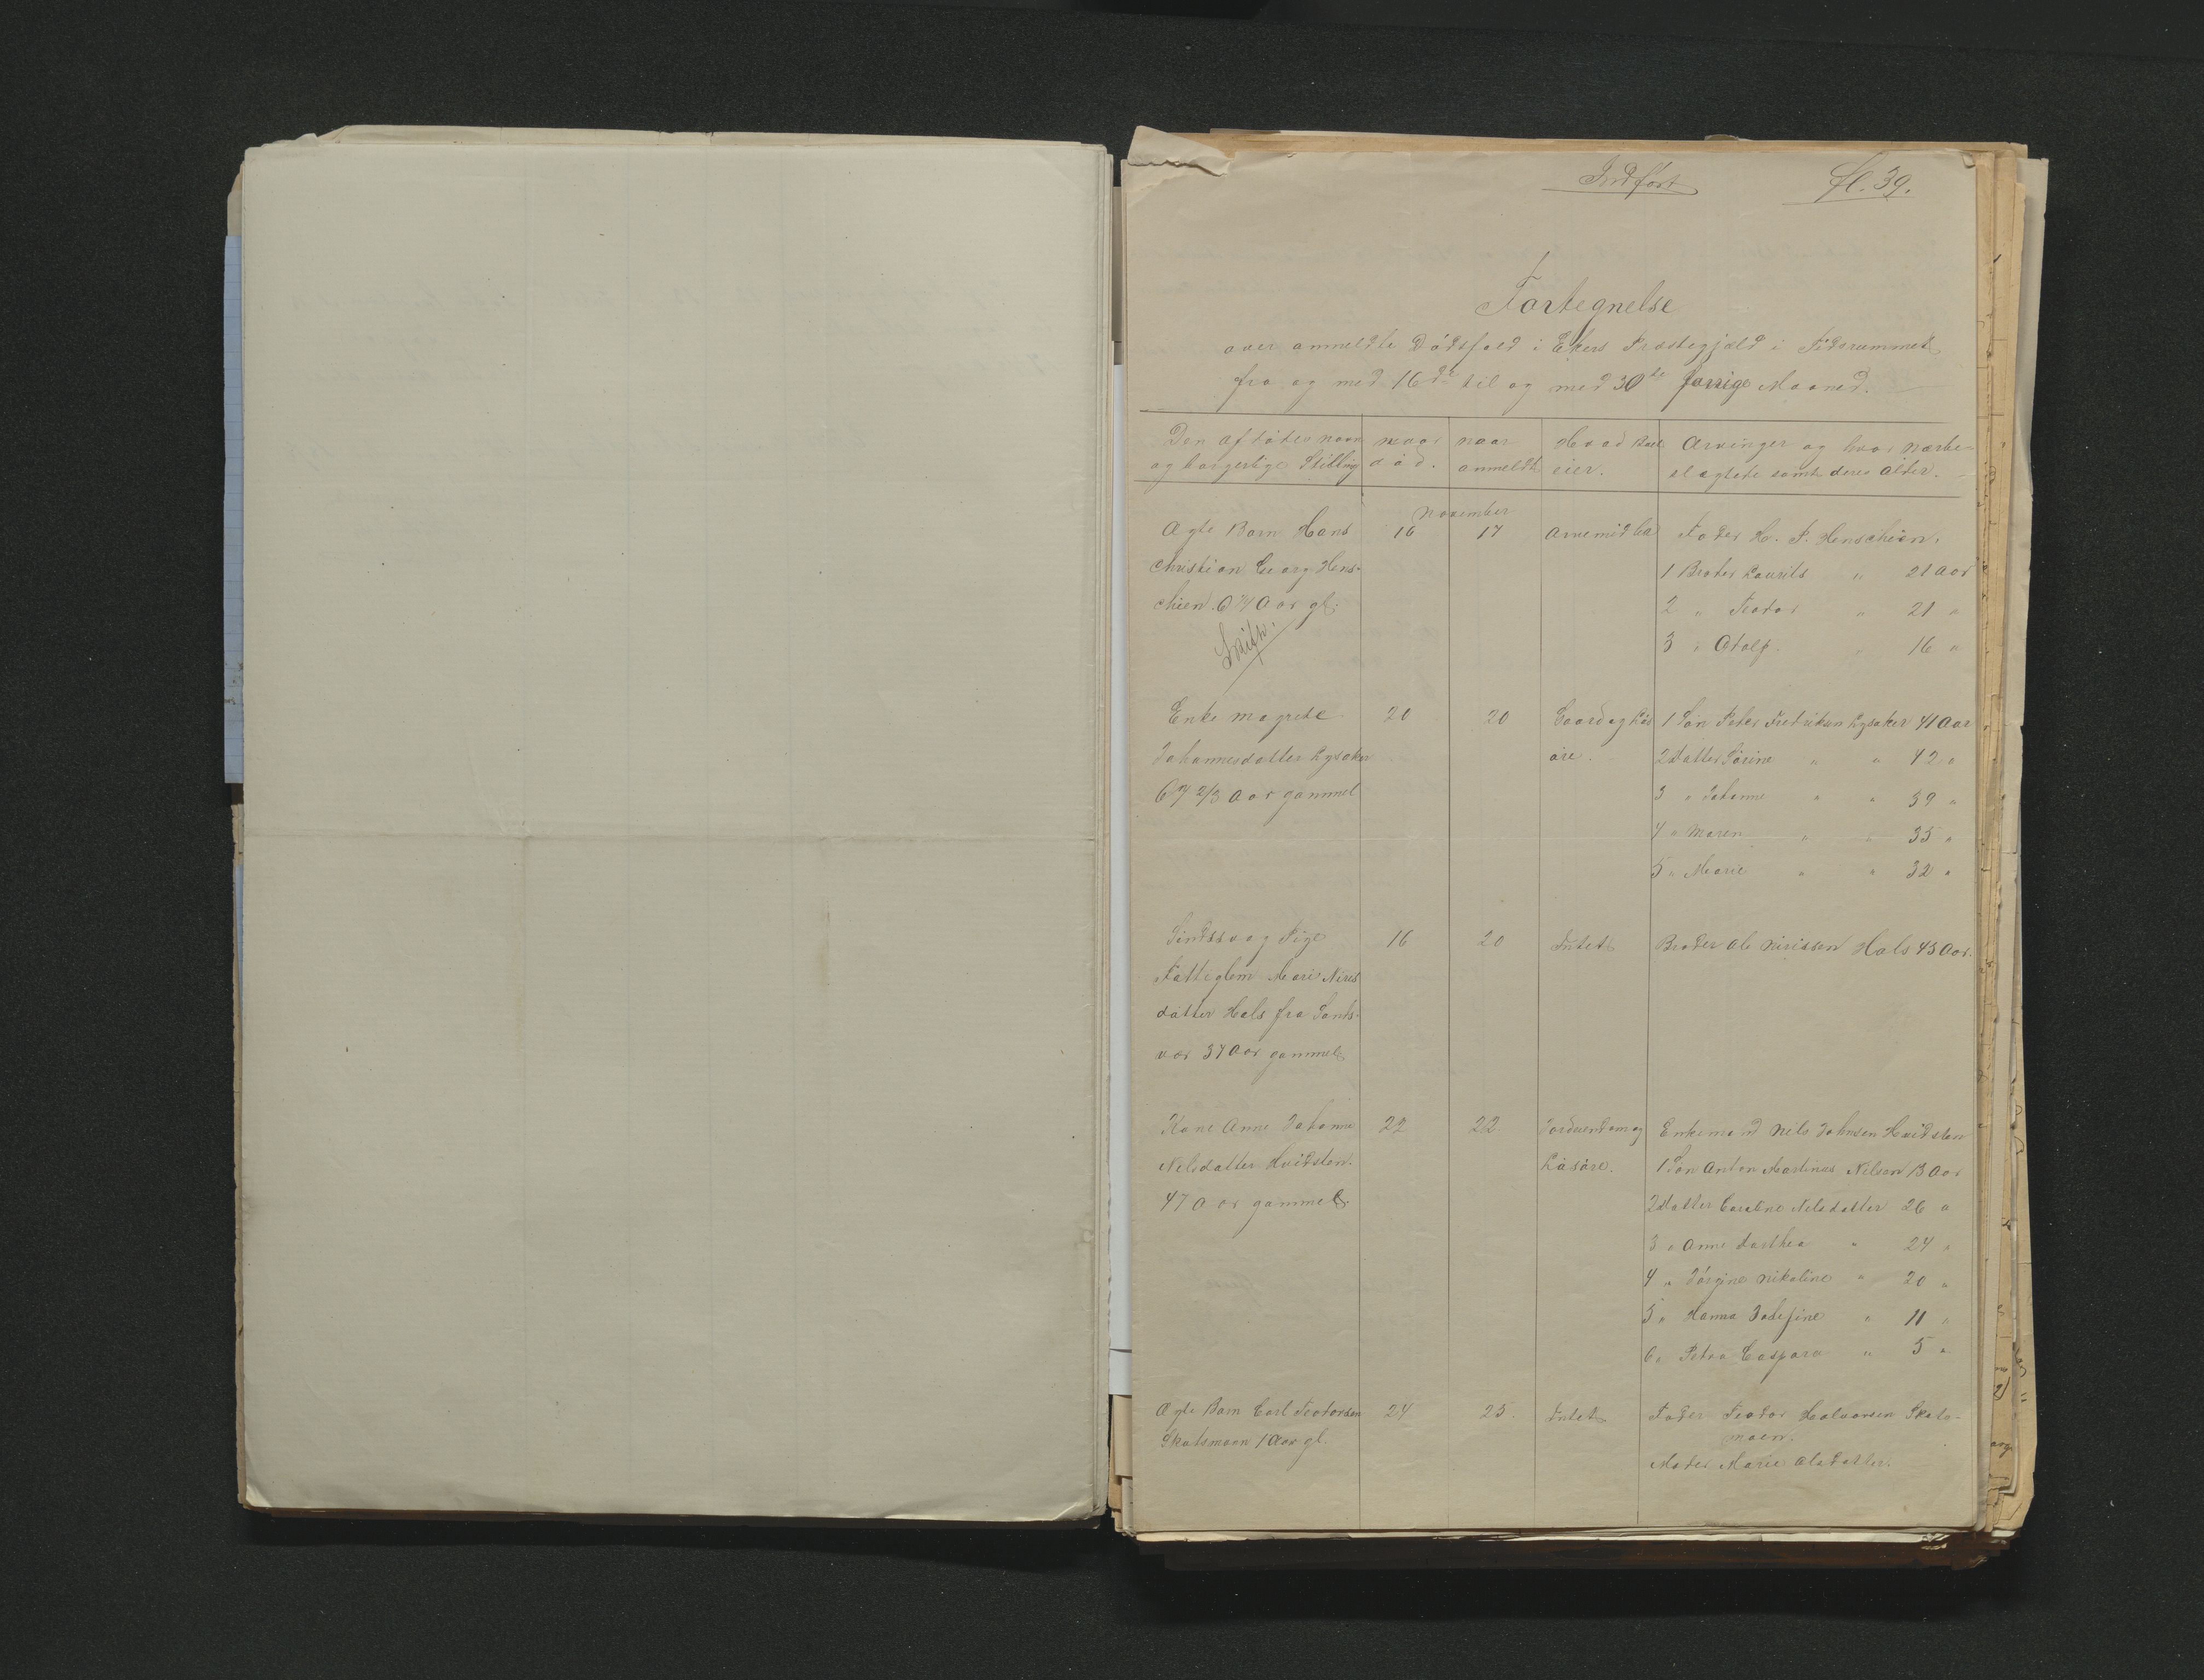 Indført fl. 39.
Fortegnelse
over anmeldte Dødsfald i Ekers Præstegjæld i Tidsrummet
fra og med 16de til og med 30te forrige Maaned.
Den afdødes navn og borgerlige Stilling
naar død.
naar anmeldt
Hvad Boet eier.
Arvinger og hvor nærbeslægtede samt deres Alder.
November
Ægte Barn Hans 16 17 Arvemidler Fader H. P. Henschien.
Christian Georg Hens- 1 Broder Laurits " 21 Aar
chien 6 Aar gl. 2 " Teodor " 21 "
Skifte. 3 " Adolf " 16 "
Enke Magrete 20 20 Gaard og Løs 1 Søn Peder Fredriksen Lysaker 41 Aar
Johannesdatter Lysaker øre. 2 Datter Sørine " " 42 "
67 2/3 Aar gammel 3 " Johanne " " 39 "
4 " Maren " " 35 "
5 " Marie " " 32 "
Sindssvag Pige 16 20 Intet Broder Ole Nirissen Hals 43 Aar.
Fattiglem Mari Niris
datter Hals fra Sands-
vær 37 Aar gammel
Kone Anne Johanne 22 22. Jordeiendom og Enkemand Nils Johnsen Hvidsten
Nilsdatter Hvidsten. Løsøre. 1 Søn Anton Martinus Nilsen 13 Aar
47 Aar gammel. 2 Datter Caroline Nilsdatter 26 "
3 " Anne Dorthea " 24 "
4 " Jørgine Nikoline " 20 "
5 " Hanna Josefine " 11 "
6 " Petra Caspara " 5 "
Ægte Barn Carl Teodorsen 24 25. Intet Fader Teodor Halvorsen Skots-
Skotsmoen 1 Aar gl. moen.
Moder Marie Olsdatter.